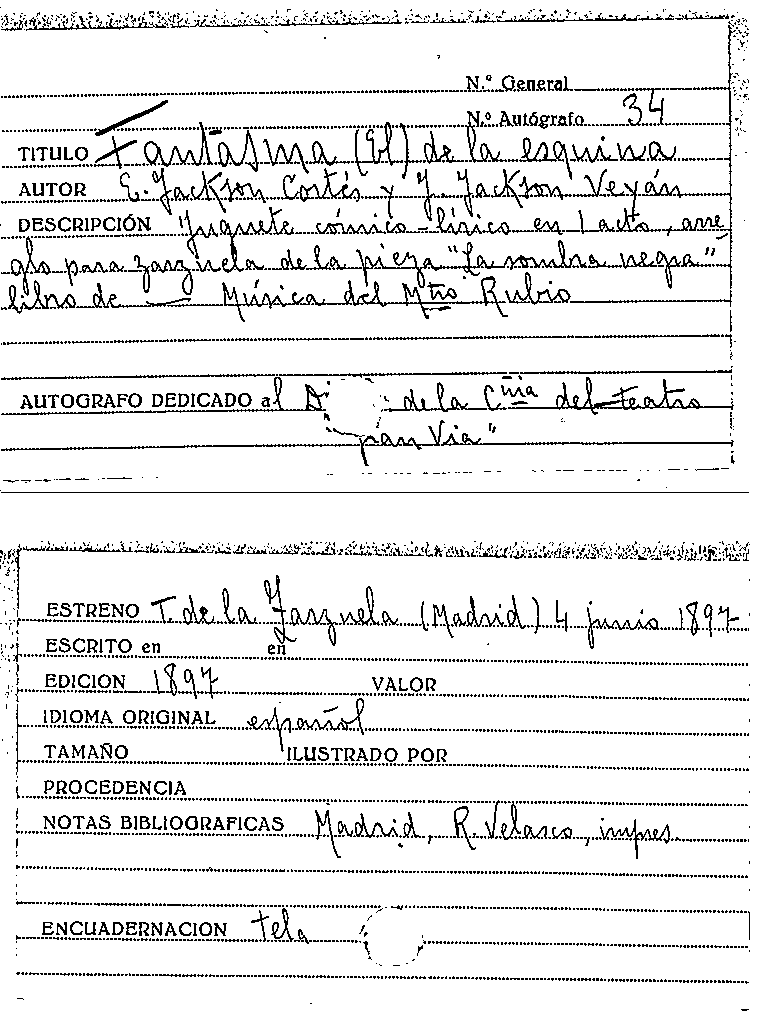 N.º General
N.º Autógrafo 34
TITULO Fantasma (El) de la esquina
AUTOR E. Jackson Cortés y J. Jackson Veyán
DESCRIPCIÓN Juguete cómico-lírico en 1 acto, arre
glo para zarzuela de la pieza "La sombra negra"
libro de — Música del Mtro Rubio
AUTOGRAFO DEDICADO al de la Cñia del teatro
Vía"
ESTRENO T. de la Zarzuela (Madrid) 4 junio 1897
ESCRITO en en
EDICION 1897 VALOR
IDIOMA ORIGINAL español
TAMAÑO ILUSTRADO POR
PROCEDENCIA
NOTAS BIBLIOGRAFICAS Madrid, R. Velasco, impres.
ENCUADERNACION tela